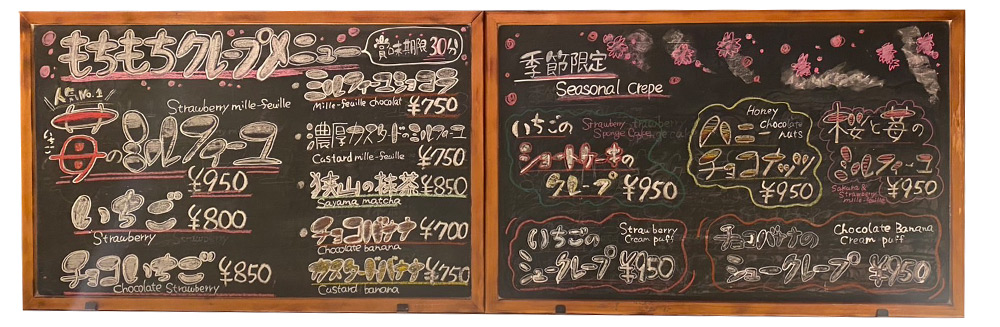 もちもちクレープメニュー
賞味期限 30分
人気No.1
Strawberry mille-feuille
苺のミルフィーユ
¥950
いちご ¥800
Strawberry
チョコいちご ¥850
Chocolate Strawberry
ミルフィーユショコラ
Mille-feuille chocolat ¥750
濃厚カスタードミルフィーユ
Custard mille-feuille ¥750
狭山の抹茶 ¥850
Sayama matcha
チョコバナナ ¥700
Chocolate banana
カスタードバナナ ¥750
Custard banana
季節限定
Seasonal Crepe
いちごの
Strawberry
Sponge
ショートケーキの
クレープ ¥950
Honey
Chocolate
nuts
ハニー
チョコナッツ
¥950
桜と苺の
ミルフィーユ
Sakura &
Strawberry
mille-feuille
¥950
いちごの
Strawberry
Cream puff
シュークレープ ¥950
チョコバナナの
Chocolate Banana
Cream puff
シュークレープ ¥950